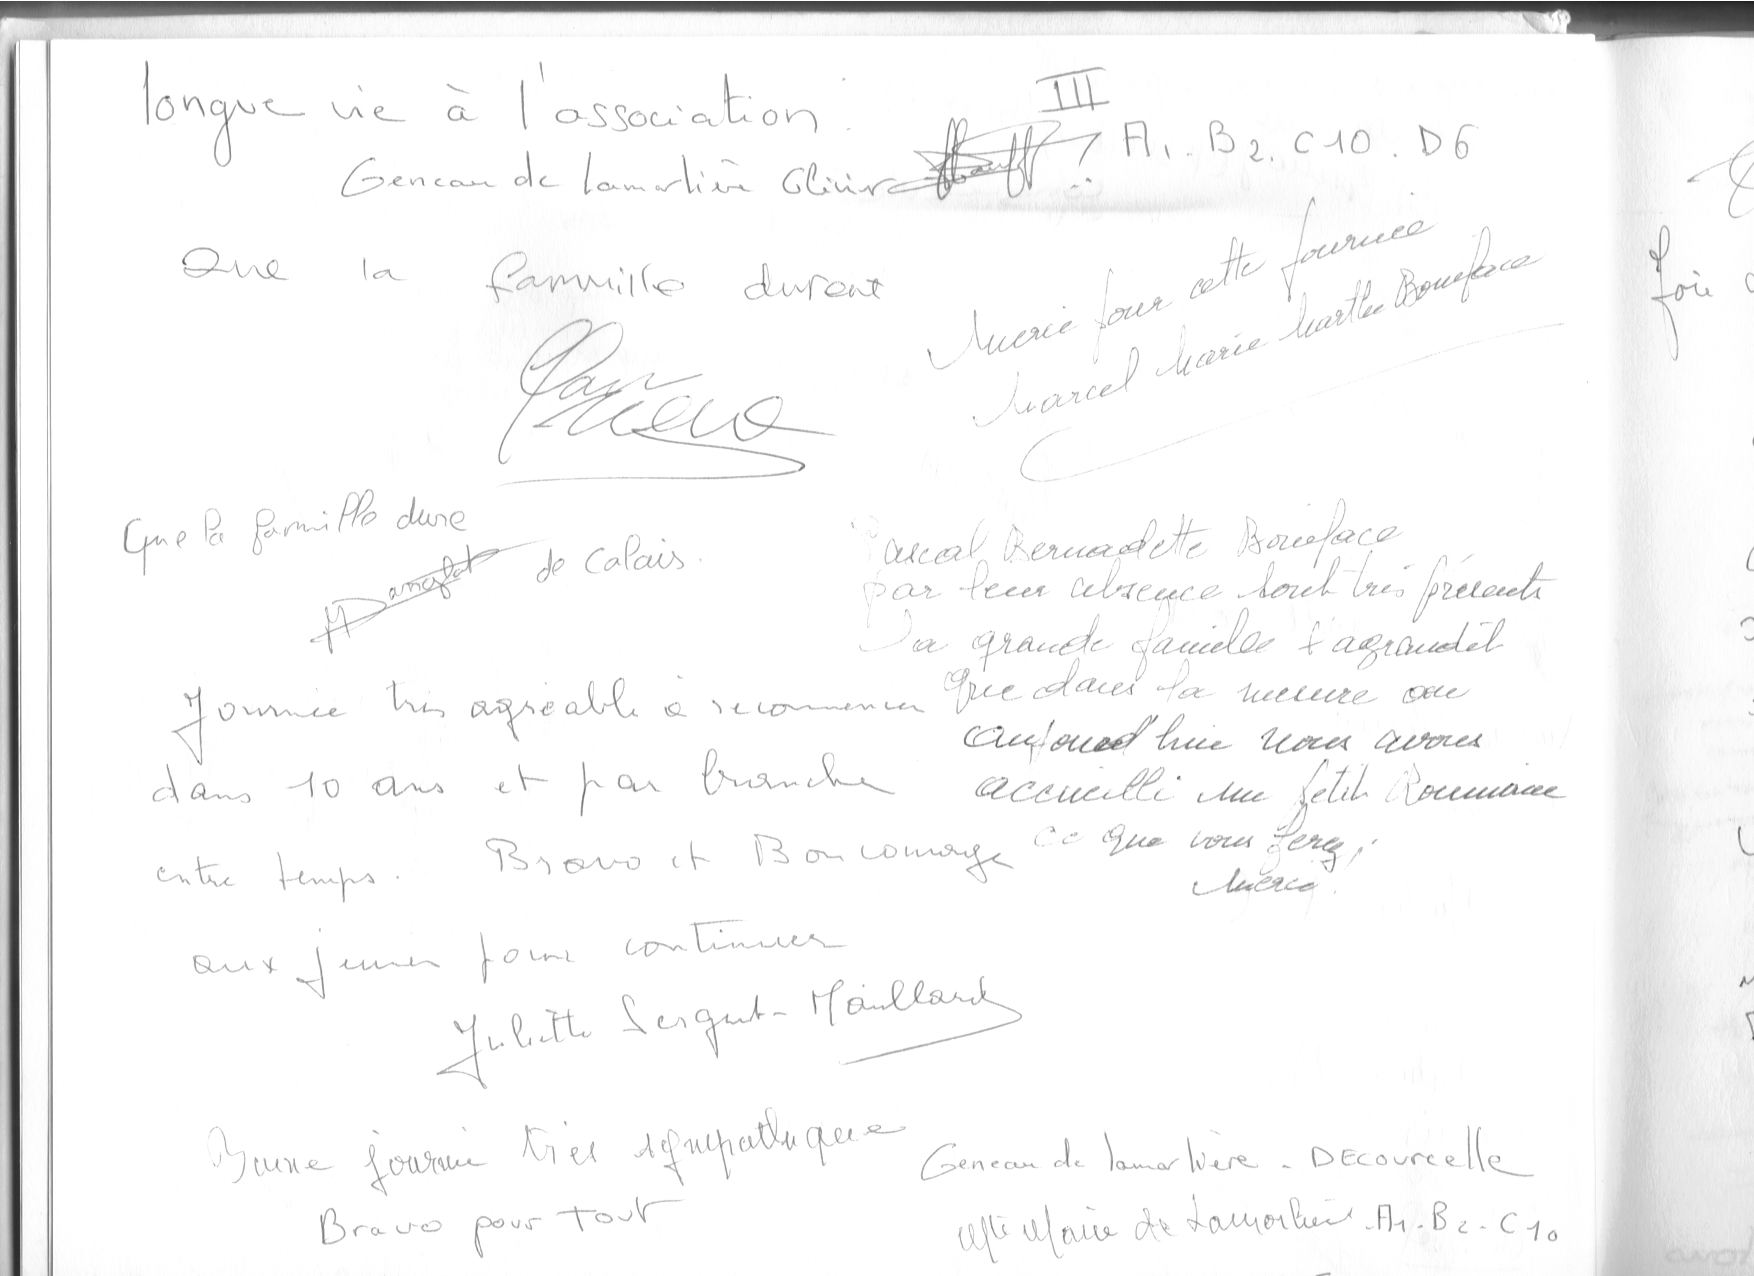 longue vie à l'association.
III
Geneau de Lamarlière Olivier
A1. B2. C10. D6
Que la famille durent
Merci pour cette journée
Marcel Marie Marthe Boniface
Que la famille dure
de Calais.
Pascal Bernadette Boniface
par leur absence sont très présents
La grande famille s'agrandit
que dans la mesure ou
aujourd'hui nous avons
accueilli un petit Roumain
ce que vous ferez,
Merci.
Journée très agréable à recommencer
dans 10 ans et par branche
entre temps. Bravo et Bon courage
aux jeunes pour continuer
Juliette Sergent-Maillard
Bonne journée très sympathique
Bravo pour tout
Geneau de Lamarlière - DEcourcelle
Marie de Lamarlière. A1. B2. C10
foie